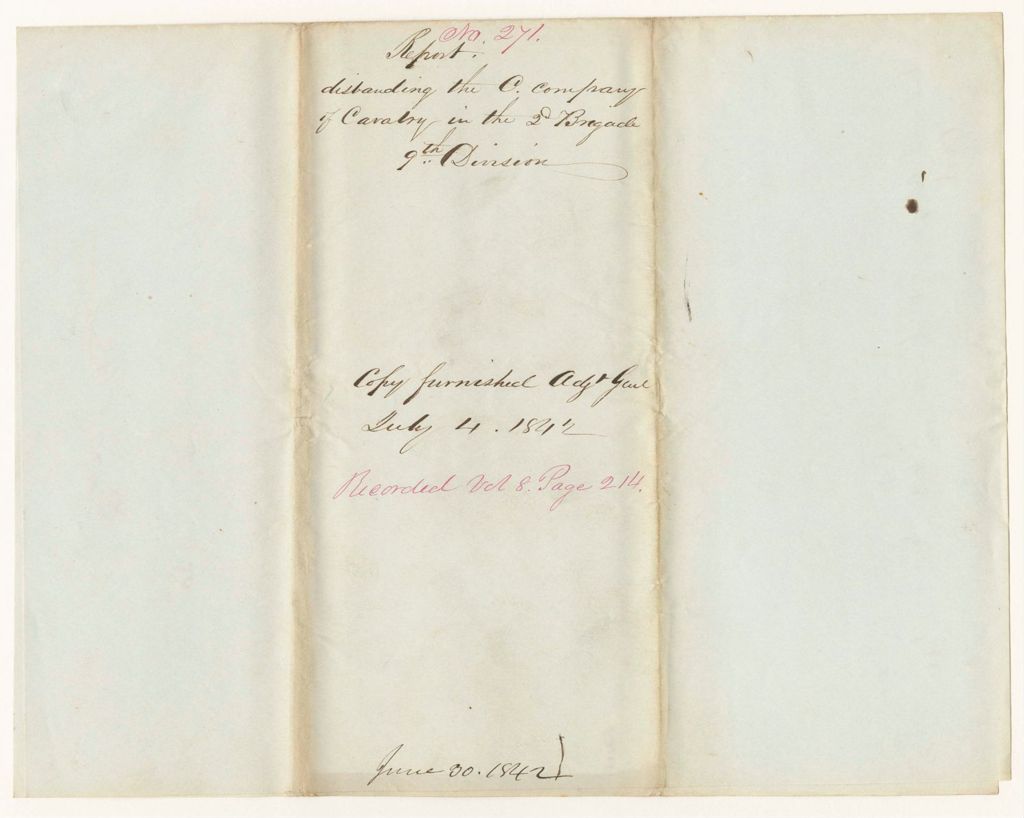 No. 271.
Report.
disbanding the C. company
of Cavalry in the 2d Brigade
9th Division
Copy furnished Adjt Genl
July 4. 1842
Recorded Vol 8. Page 214.
June 30. 1842